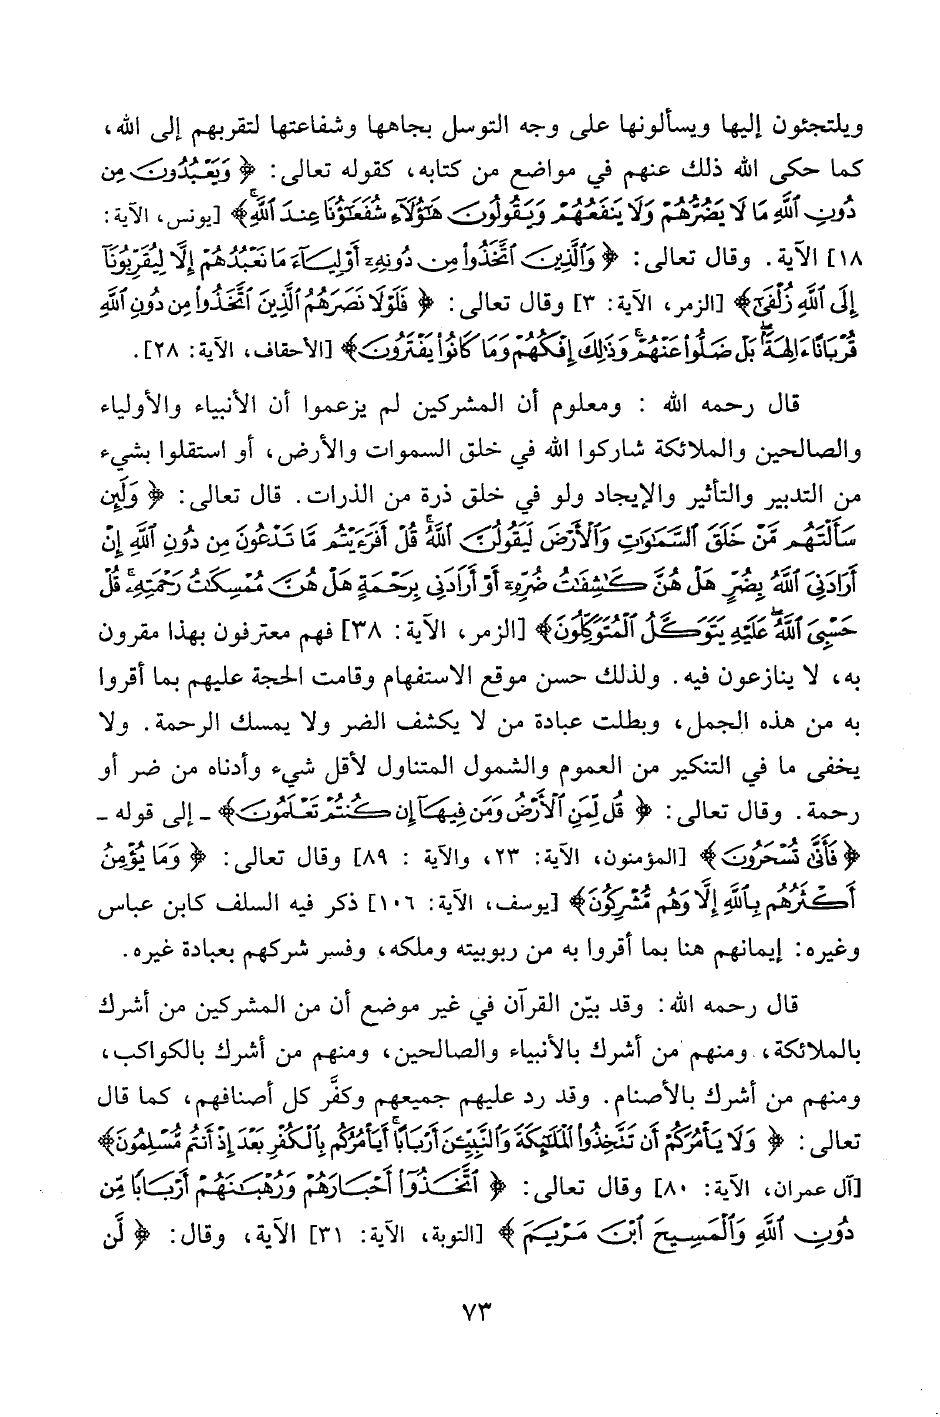 ويلتجئون إليها ويسألونها على وجه التوسل بجاهها وشفاعتها لتقربهم إلى الله،
كما حكى الله ذلك عنهم في مواضع من كتابه، كقوله تعالى: ﴿ وَيَعْبُدُونَ مِن
دُونِ ٱللَّهِ مَا لَا يَضُرُّهُمْ وَلَا يَنفَعُهُمْ وَيَقُولُونَ هَٰٓؤُلَآءِ شُفَعَٰٓؤُنَا عِندَ ٱللَّهِ ۚ﴾ [يونس، الآية:
١٨] الآية. وقال تعالى: ﴿ وَٱلَّذِينَ ٱتَّخَذُوا۟ مِن دُونِهِۦٓ أَوْلِيَآءَ مَا نَعْبُدُهُمْ إِلَّا لِيُقَرِّبُونَآ
إِلَى ٱللَّهِ زُلْفَىٰٓ ﴾ [الزمر، الآية: ٣] وقال تعالى: ﴿ فَلَوْلَا نَصَرَهُمُ ٱلَّذِينَ ٱتَّخَذُوا۟ مِن دُونِ ٱللَّهِ
قُرْبَانًا ءَالِهَةًۢ ۖ بَلْ ضَلُّوا۟ عَنْهُمْ ۚ وَذَٰلِكَ إِفْكُهُمْ وَمَا كَانُوا۟ يَفْتَرُونَ ﴾ [الأحقاف، الآية: ٢٨].
قال رحمه الله : ومعلوم أن المشركين لم يزعموا أن الأنبياء والأولياء
والصالحين والملائكة شاركوا الله في خلق السموات والأرض، أو استقلوا بشيء
من التدبير والتأثير والإيجاد ولو في خلق ذرة من الذرات. قال تعالى: ﴿ وَلَئِن
سَأَلْتَهُم مَّنْ خَلَقَ ٱلسَّمَٰوَٰتِ وَٱلْأَرْضَ لَيَقُولُنَّ ٱللَّهُ ۚ قُلْ أَفَرَءَيْتُم مَّا تَدْعُونَ مِن دُونِ ٱللَّهِ إِنْ
أَرَادَنِيَ ٱللَّهُ بِضُرٍّ هَلْ هُنَّ كَٰشِفَٰتُ ضُرِّهِۦٓ أَوْ أَرَادَنِى بِرَحْمَةٍ هَلْ هُنَّ مُمْسِكَٰتُ رَحْمَتِهِۦ ۚ قُلْ
حَسْبِىَ ٱللَّهُ ۖ عَلَيْهِ يَتَوَكَّلُ ٱلْمُتَوَكِّلُونَ ﴾ [الزمر، الآية: ٣٨] فهم معترفون بهذا مقرون
به، لا ينازعون فيه. ولذلك حسن موقع الاستفهام وقامت الحجة عليهم بما أقروا
به من هذه الجمل، وبطلت عبادة من لا يكشف الضر ولا يمسك الرحمة. ولا
يخفى ما في التنكير من العموم والشمول المتناول لأقل شيء وأدناه من ضر أو
رحمة. وقال تعالى: ﴿ قُل لِّمَنِ ٱلْأَرْضُ وَمَن فِيهَآ إِن كُنتُمْ تَعْلَمُونَ ﴾ ـ إلى قوله ـ
﴿ فَأَنَّىٰ تُسْحَرُونَ ﴾ [المؤمنون، الآية: ٢٣، والآية : ٨٩] وقال تعالى: ﴿ وَمَا يُؤْمِنُ
أَكْثَرُهُم بِٱللَّهِ إِلَّا وَهُم مُّشْرِكُونَ ﴾ [يوسف، الآية: ١٠٦] ذكر فيه السلف كابن عباس
وغيره: إيمانهم هنا بما أقروا به من ربوبيته وملكه، وفسر شركهم بعبادة غيره.
قال رحمه الله: وقد بيّن القرآن في غير موضع أن من المشركين من أشرك
بالملائكة، ومنهم من أشرك بالأنبياء والصالحين، ومنهم من أشرك بالكواكب،
ومنهم من أشرك بالأصنام. وقد رد عليهم جميعهم وكفَّر كل أصنافهم، كما قال
تعالى: ﴿ وَلَا يَأْمُرَكُمْ أَن تَتَّخِذُوا۟ ٱلْمَلَٰٓئِكَةَ وَٱلنَّبِيِّـۧنَ أَرْبَابًا ۗ أَيَأْمُرُكُم بِٱلْكُفْرِ بَعْدَ إِذْ أَنتُم مُّسْلِمُونَ ﴾
[آل عمران، الآية: ٨٠] وقال تعالى: ﴿ ٱتَّخَذُوٓا۟ أَحْبَارَهُمْ وَرُهْبَٰنَهُمْ أَرْبَابًا مِّن
دُونِ ٱللَّهِ وَٱلْمَسِيحَ ٱبْنَ مَرْيَمَ ﴾ [التوبة، الآية: ٣١] الآية، وقال: ﴿ لَّن
٧٣